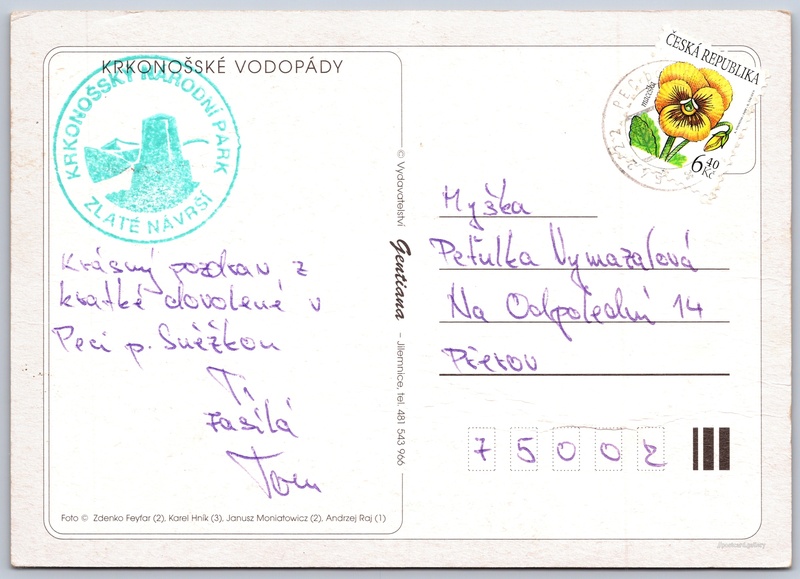 KRKONOŠSKÉ VODOPÁDY
KRKONOŠSKÝ NÁRODNÍ PARK
ZLATÉ NÁVRŠÍ
Krásný pozdrav z
krátké dovolené v
Peci p. Sněžkou
Ti
zasílá
Tom
Foto © Zdenko Feyfar (2), Karel Hník (3), Janusz Moniatowicz (2), Andrzej Raj (1)
© Vydavatelství Gentiana – Jilemnice, tel. 481 543 966
ČESKÁ REPUBLIKA
maceška
6 40
Kč
Myška
Peťulka Vymazalová
Na Odpolední 14
Přerov
75002